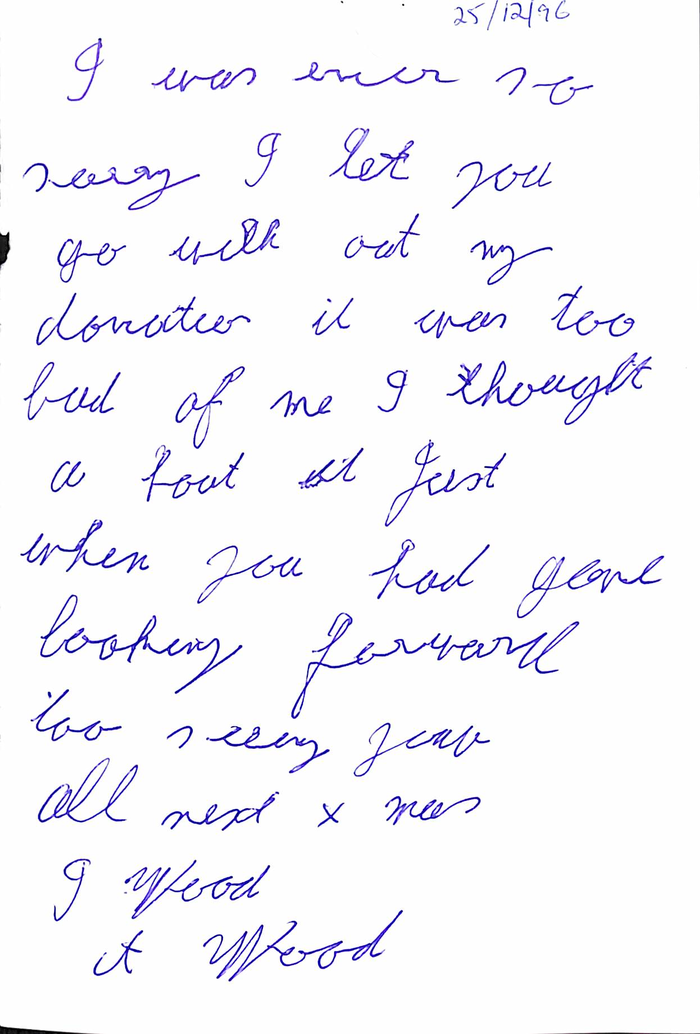 25/12/96
I was ever so
sorry I let you
go with out my
donation it was too
bad of me I thought
a bout it Just
when you had gone
looking forward
too seeing you
all next x mas
I Wood
it Wood